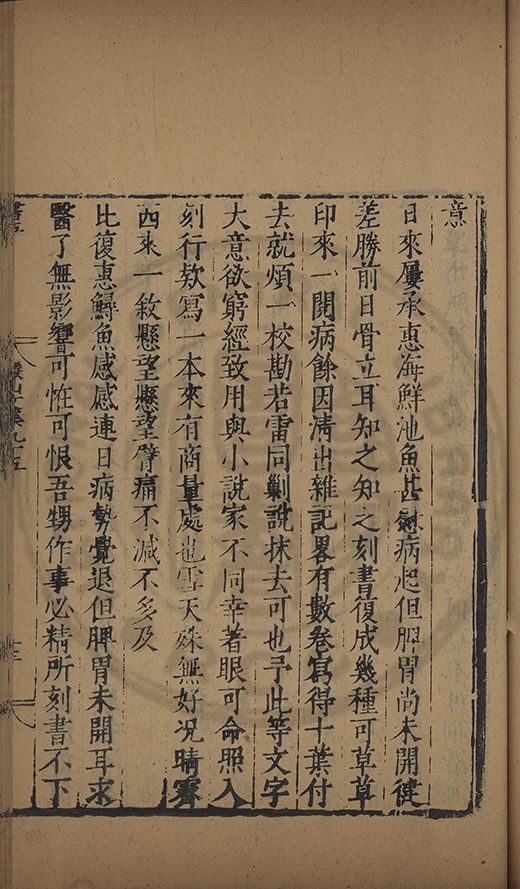 意
日來屢承惠海鮮池魚甚慰病爬但脾胃尚未開徤
差勝前日骨立耳知之知之刻書復成幾種可草草
印來一閱病餘因淸出雜記畧有數卷寫得十葉付
去就煩一校勘若雷同剿說抹去可也予此等文字
大意欲窮經致用與小說家不同幸著眼可命照入
刻行欵寫一本來有商量處也雪天殊無好况晴霽
西來一敘懸望懸望臂痛不減不多及
比復惠鱘魚感感連日病勢覺退但脾胃未開耳求
醫了無影響可恠可恨吾甥作事必精所刻書不下